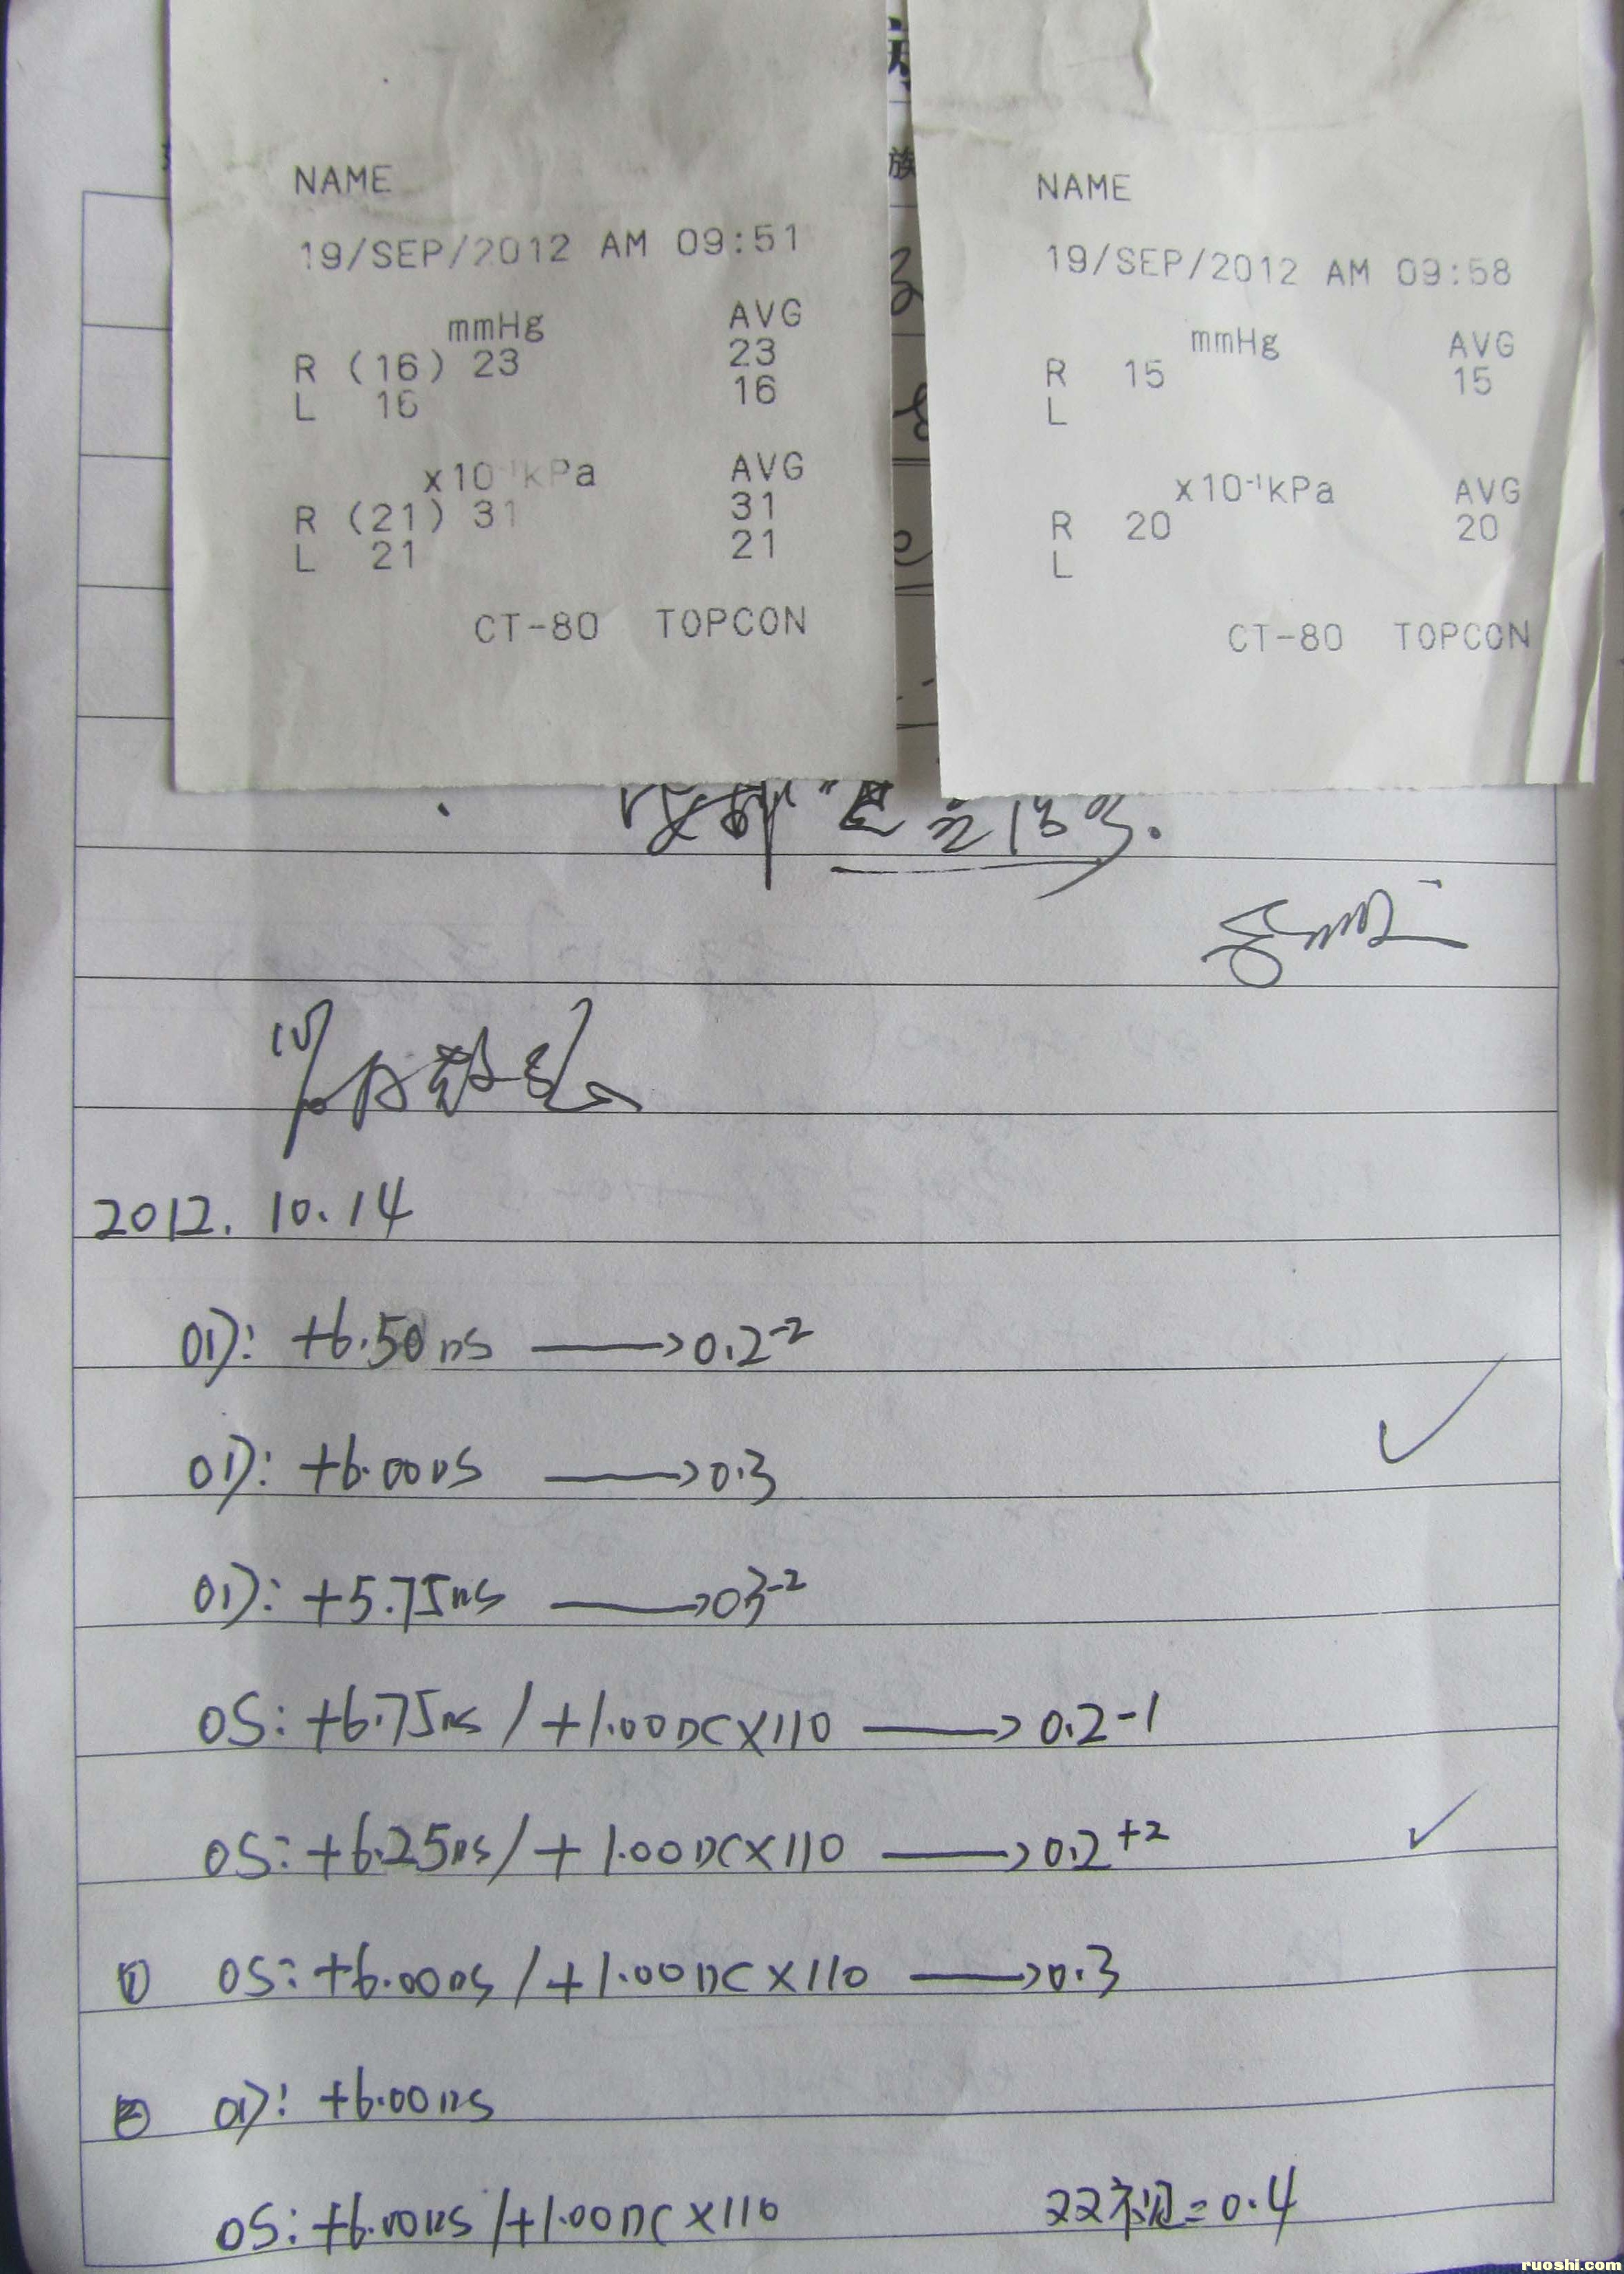 NAME
19/SEP/2012 AM 09:51
mmHg AVG
R (16) 23 23
L 16 16
x10⁻¹kPa AVG
R (21) 31 31
L 21 21
CT-80 TOPCON
族
NAME
19/SEP/2012 AM 09:58
mmHg AVG
R 15 15
L
x10⁻¹kPa AVG
R 20 20
L
CT-80 TOPCON
2012. 10. 14
OD: +6.50DS → 0.2⁻²
OD: +6.00DS → 0.3 ✓
OD: +5.75DS → 0.3⁻²
OS: +6.75DS / +1.00DC×110 → 0.2-1
OS: +6.25DS / +1.00DC×110 → 0.2⁺² ✓
① OS: +6.00DS / +1.00DC×110 → 0.3
② OD: +6.00DS
OS: +6.00DS / +1.00DC×110 双视=0.4
ruoshi.com